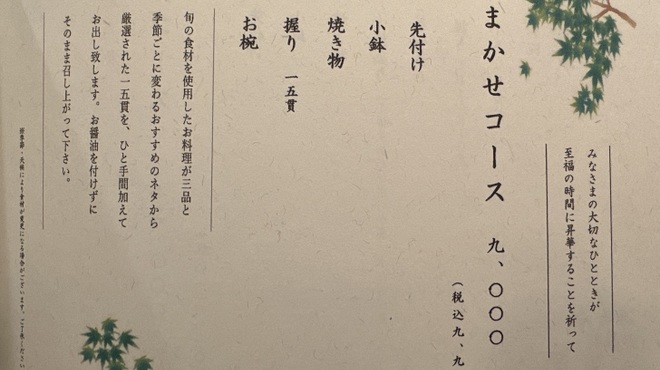 みなさまの大切なひとときが
至福の時間に昇華することを祈って
まかせコース 九、〇〇〇
(税込九、九
先付け
小鉢
焼き物
握り 一五貫
お椀
旬の食材を使用したお料理が三品と
季節ごとに変わるおすすめのネタから
厳選された一五貫を、ひと手間加えて
お出し致します。お醤油を付けずに
そのまま召し上がって下さい。
※季節・天候により食材が変更になる場合がございます。ご了承ください